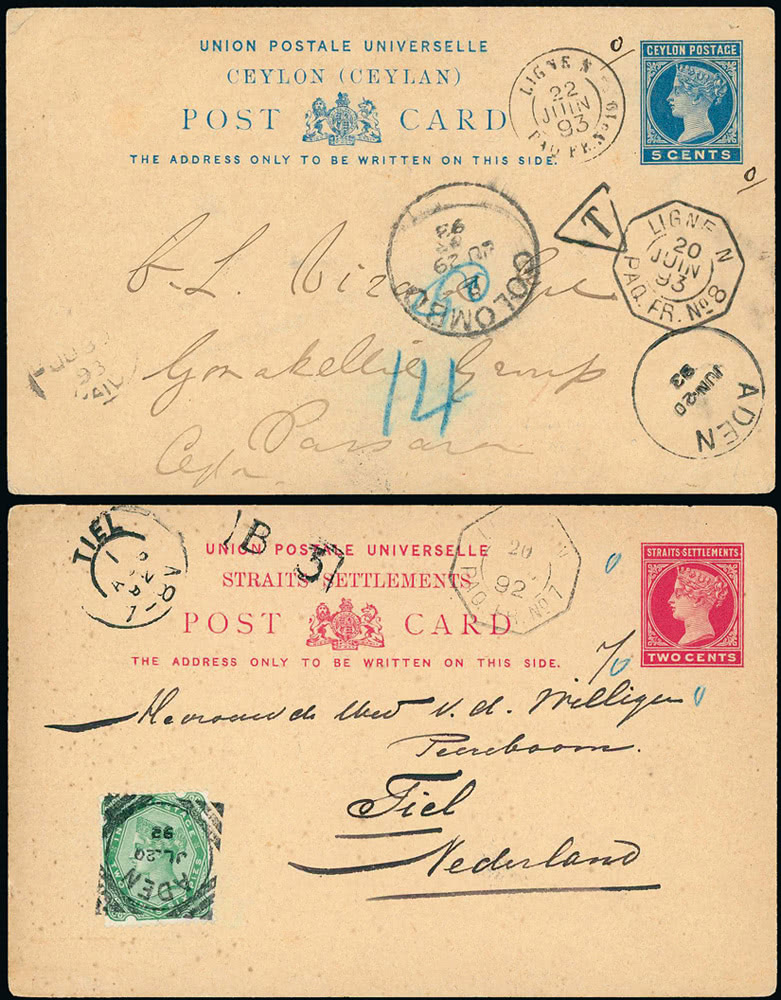 UNION POSTALE UNIVERSELLE
CEYLON (CEYLAN)
POST CARD
THE ADDRESS ONLY TO BE WRITTEN ON THIS SIDE.
CEYLON POSTAGE
5 CENTS
LIGNE N
22
JUIN
93
PAQ. FR. No 10
T
LIGNE N
20
JUIN
93
PAQ. FR. No 8
COLOMBO
93
14
ADEN
JUN-20
93
93
Group
Passara
UNION POSTALE UNIVERSELLE
STRAITS SETTLEMENTS
POST CARD
THE ADDRESS ONLY TO BE WRITTEN ON THIS SIDE.
STRAITS SETTLEMENTS
TWO CENTS
TIEL
B 3
20
92
PAQ. FR. No 7
v. d. Willigen
Peereboom.
Tiel
Nederland
ADEN
JL.20
92